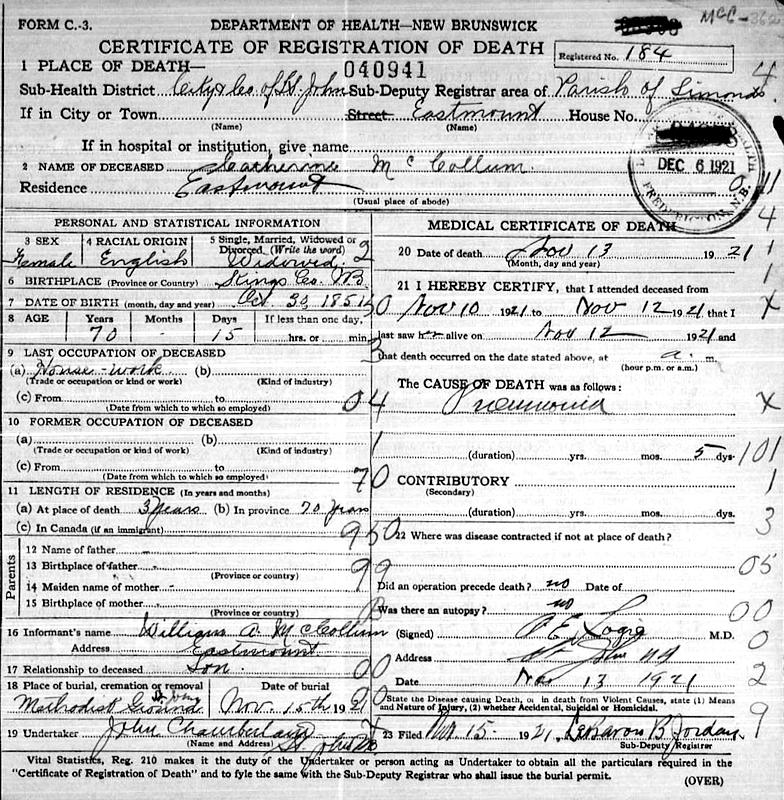 FORM C.-3. DEPARTMENT OF HEALTH—NEW BRUNSWICK
McC-
CERTIFICATE OF REGISTRATION OF DEATH
Registered No. 184
1 PLACE OF DEATH— 040941
Sub-Health District City & Co of St. John Sub-Deputy Registrar area of Parish of Simonds
If in City or Town Street Eastmount House No.
(Name) (Name)
If in hospital or institution, give name
2 NAME OF DECEASED Catherine McCollum
Residence Eastmount
(Usual place of abode)
DEC 6 1921
FREDERICTON, N.B.
PERSONAL AND STATISTICAL INFORMATION
3 SEX 4 RACIAL ORIGIN 5 Single, Married, Widowed or Divorced (Write the word)
Female English Widowed
6 BIRTHPLACE (Province or Country) Kings Co. NB
7 DATE OF BIRTH (month, day and year) Oct. 30, 1851
8 AGE Years Months Days If less than one day,
70 - 15 hrs. or min.
9 LAST OCCUPATION OF DECEASED
(a) House-work (b)
(Trade or occupation or kind or work) (Kind of industry)
(c) From to
(Date from which to which so employed)
10 FORMER OCCUPATION OF DECEASED
(a) (b)
(Trade or occupation or kind of work) (Kind of industry)
(c) From to
(Date from which to which so employed)
11 LENGTH OF RESIDENCE (In years and months)
(a) At place of death 3 years (b) In province 70 years
(c) In Canada (if an immigrant)
Parents
12 Name of father -
13 Birthplace of father -
(Province or country)
14 Maiden name of mother -
15 Birthplace of mother -
(Province or country)
16 Informant's name William A. McCollum
Address Eastmount
17 Relationship to deceased Son
18 Place of burial, cremation or removal Date of burial
Methodist Ground St. John Nov. 15th 1921
19 Undertaker John Chamberlain
(Name and Address) St. John NB
MEDICAL CERTIFICATE OF DEATH
20 Date of death Nov 13 1921
(Month, day and year)
21 I HEREBY CERTIFY, that I attended deceased from
Nov 10 1921 to Nov 12 1921 I
last saw her alive on Nov 12 1921 and
that death occurred on the date stated above, at a. m.
(hour p.m. or a.m.)
The CAUSE OF DEATH was as follows:
Pneumonia
(duration) yrs. mos. 5 dys.
CONTRIBUTORY
(Secondary)
(duration) yrs. mos. dys.
22 Where was disease contracted if not at place of death?
Did an operation precede death? no Date of
Was there an autopsy? no
(Signed) Logie M.D.
Address St John NB
Date Nov 13 1921
State the Disease causing Death, or in death from Violent Causes, state (1) Means
and Nature of Injury, (2) whether Accidental, Suicidal or Homicidal.
23 Filed Nov. 15 1921, LeBaron B Jordan
Sub-Deputy Registrar
Vital Statistics, Reg. 210 makes it the duty of the Undertaker or person acting as Undertaker to obtain all the particulars required in the
"Certificate of Registration of Death" and to fyle the same with the Sub-Deputy Registrar who shall issue the burial permit.
(OVER)